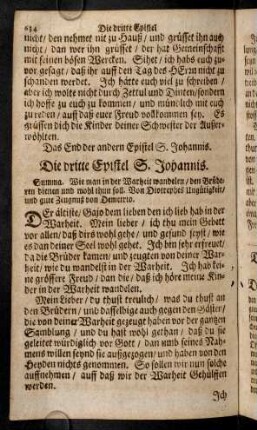 614 Die dritte Epistel
nicht/ den nehmet nit zu Hauß/ und grüsset ihn auch
nicht/ dan wer ihn grüsset/ der hat Gemeinschafft
mit seinen bösen Wercken. Sihet/ ich habs euch zu-
vor gesagt/ daß ihr auff den Tag des HErrn nicht zu
schanden werdet. Ich hätte euch viel zu schreiben/
aber ich wolte nicht durch Zettul und Dinten/ sondern
ich hoffe zu euch zu kommen/ und mündlich mit euch
zu reden/ auff daß euer Freud vollkommen sey. Es
grüssen dich die Kinder deiner Schwester der Außer-
wöhlten.
Das End der andern Epistel S. Johannis.
Die dritte Epistel S. Johannis.
Summa. Wie man in der Warheit wandelen/ den Brüde-
ren dienen und wohl thun soll. Von Diotrephes Ungütigkeit/
und gute Zeugnus von Demetrio.
DEr älteste/ Gajo dem lieben den ich lieb hab in der
Warheit. Mein lieber/ ich thu mein Gebett
vor allen/ daß dirs wohl gehe/ und gesund seyst/ wie
es dan deiner Seel wohl gehet. Ich bin sehr erfreuet/
da die Brüder kamen/ und zeugten von deiner War-
heit/ wie du wandelst in der Warheit. Ich hab kei-
ne grössere Freud/ dan die/ daß ich höre meine Kin-
der in der Warheit wandelen.
Mein Lieber/ du thust treulich/ was du thust an
den Brüdern/ und dasselbige auch gegen den Gästen/
die von deiner Warheit gezeuget haben vor der gantzen
Samblung/ und du hast wohl gethan/ daß du sie
geleitet würdiglich vor Gott/ dan umb seines Nah-
mens willen seynd sie außgezogen/ und haben von den
Heyden nichts genommen. So sollen wir nun solche
auffnehmen/ auff daß wir der Warheit Gehülffen
werden.
Ich